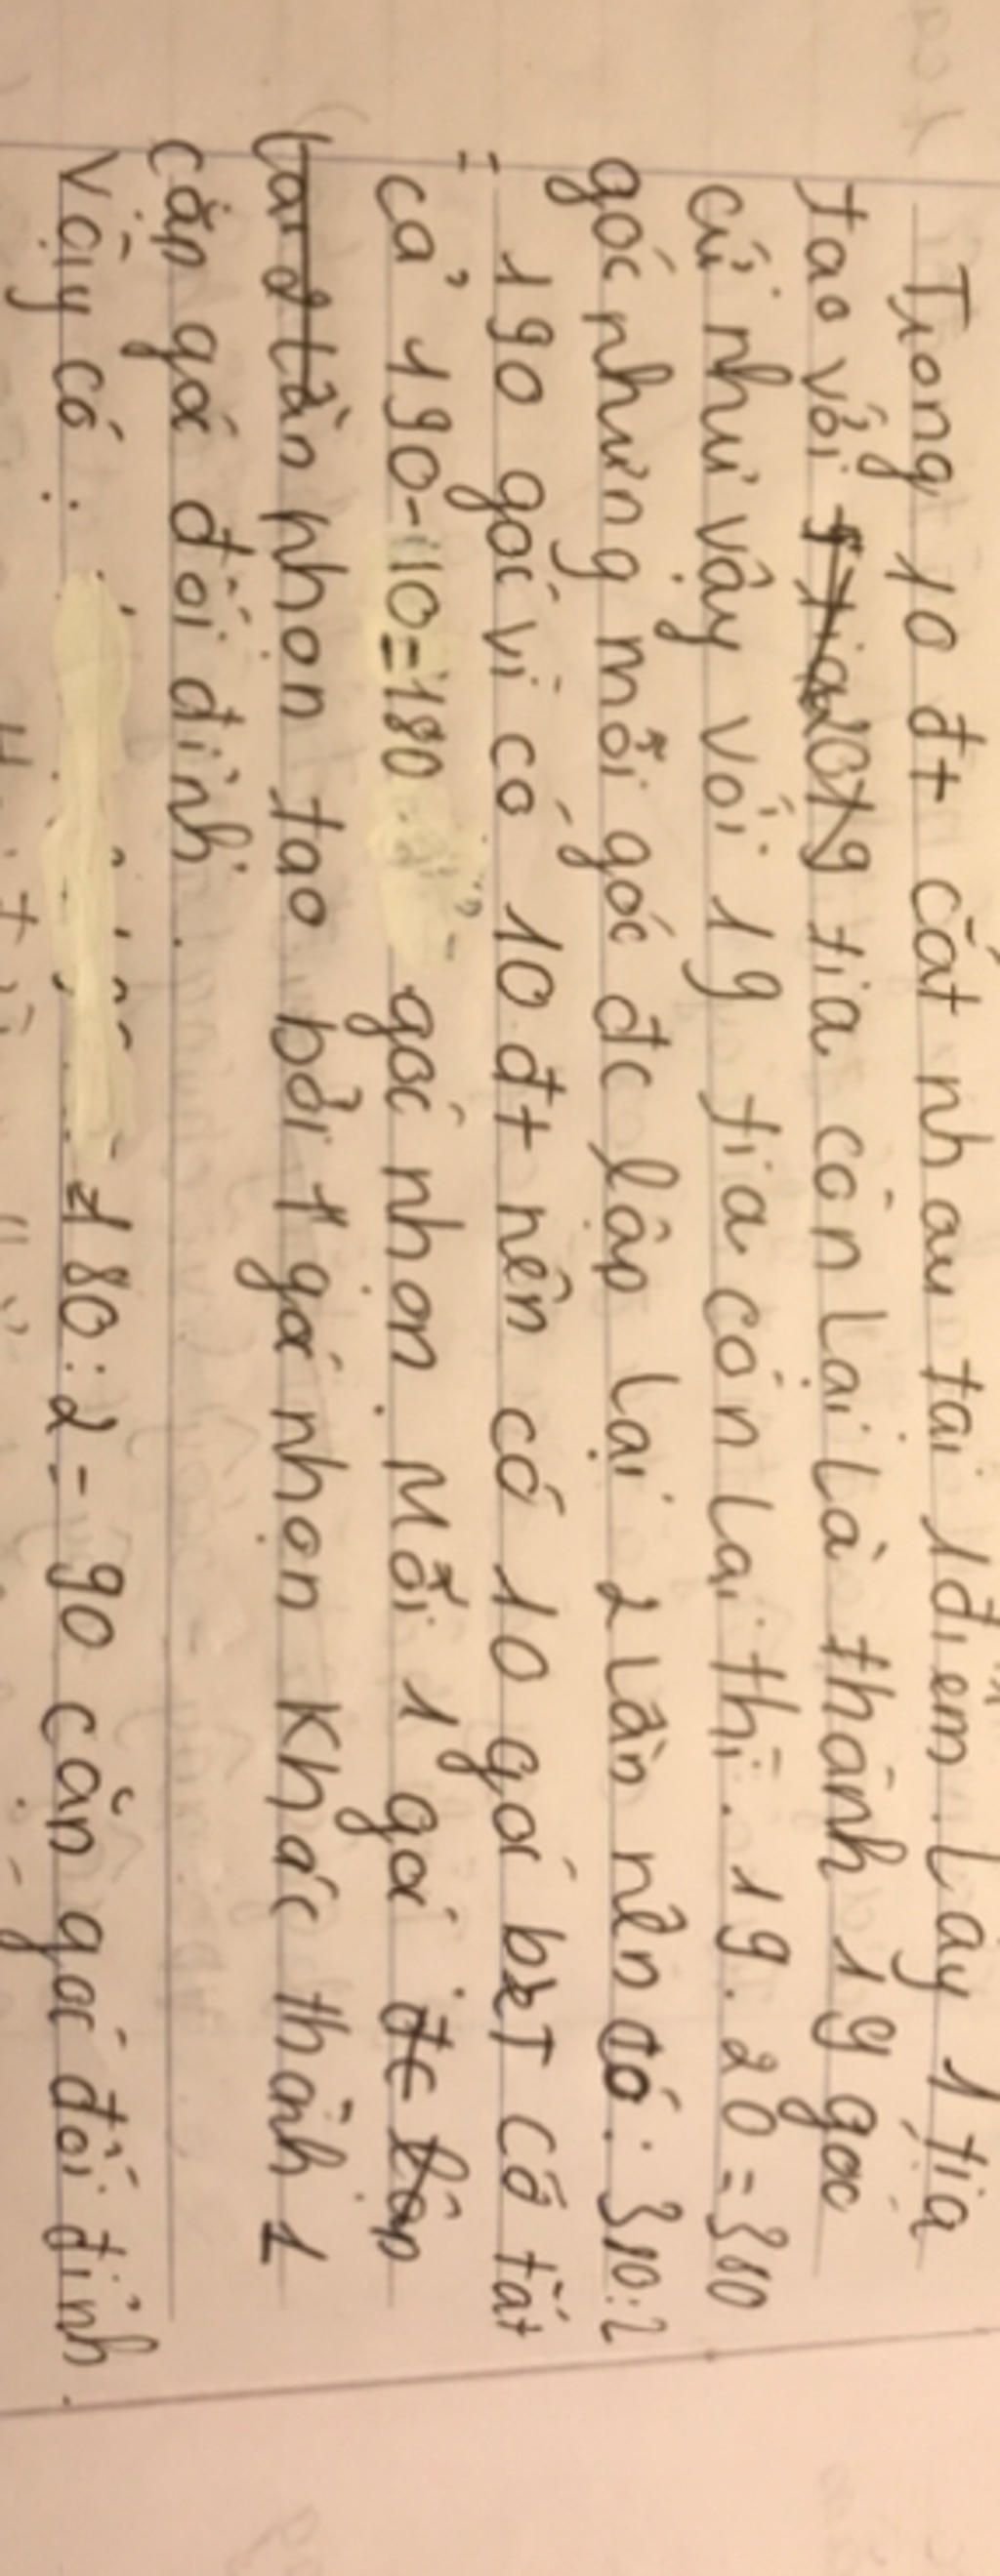 Trong 10 đt cắt nhau tại 1 điểm. Lấy 1 tia
tạo với 19 tia còn lại là thành 19 góc
cứ như vậy với 19 tia còn lại thì. 19. 20 = 380
góc nhưng mỗi góc đc lập lại 2 lần nên có: 380:2
= 190 góc vì có 10 đt nên có 10 góc bẹt có tất
cả 190-10=180 góc nhọn. Mỗi 1 góc
nhọn tạo bởi 1 góc nhọn khác thành 1
cặp góc đối đỉnh.
Vậy có: 180:2 = 90 cặp góc đối đỉnh.